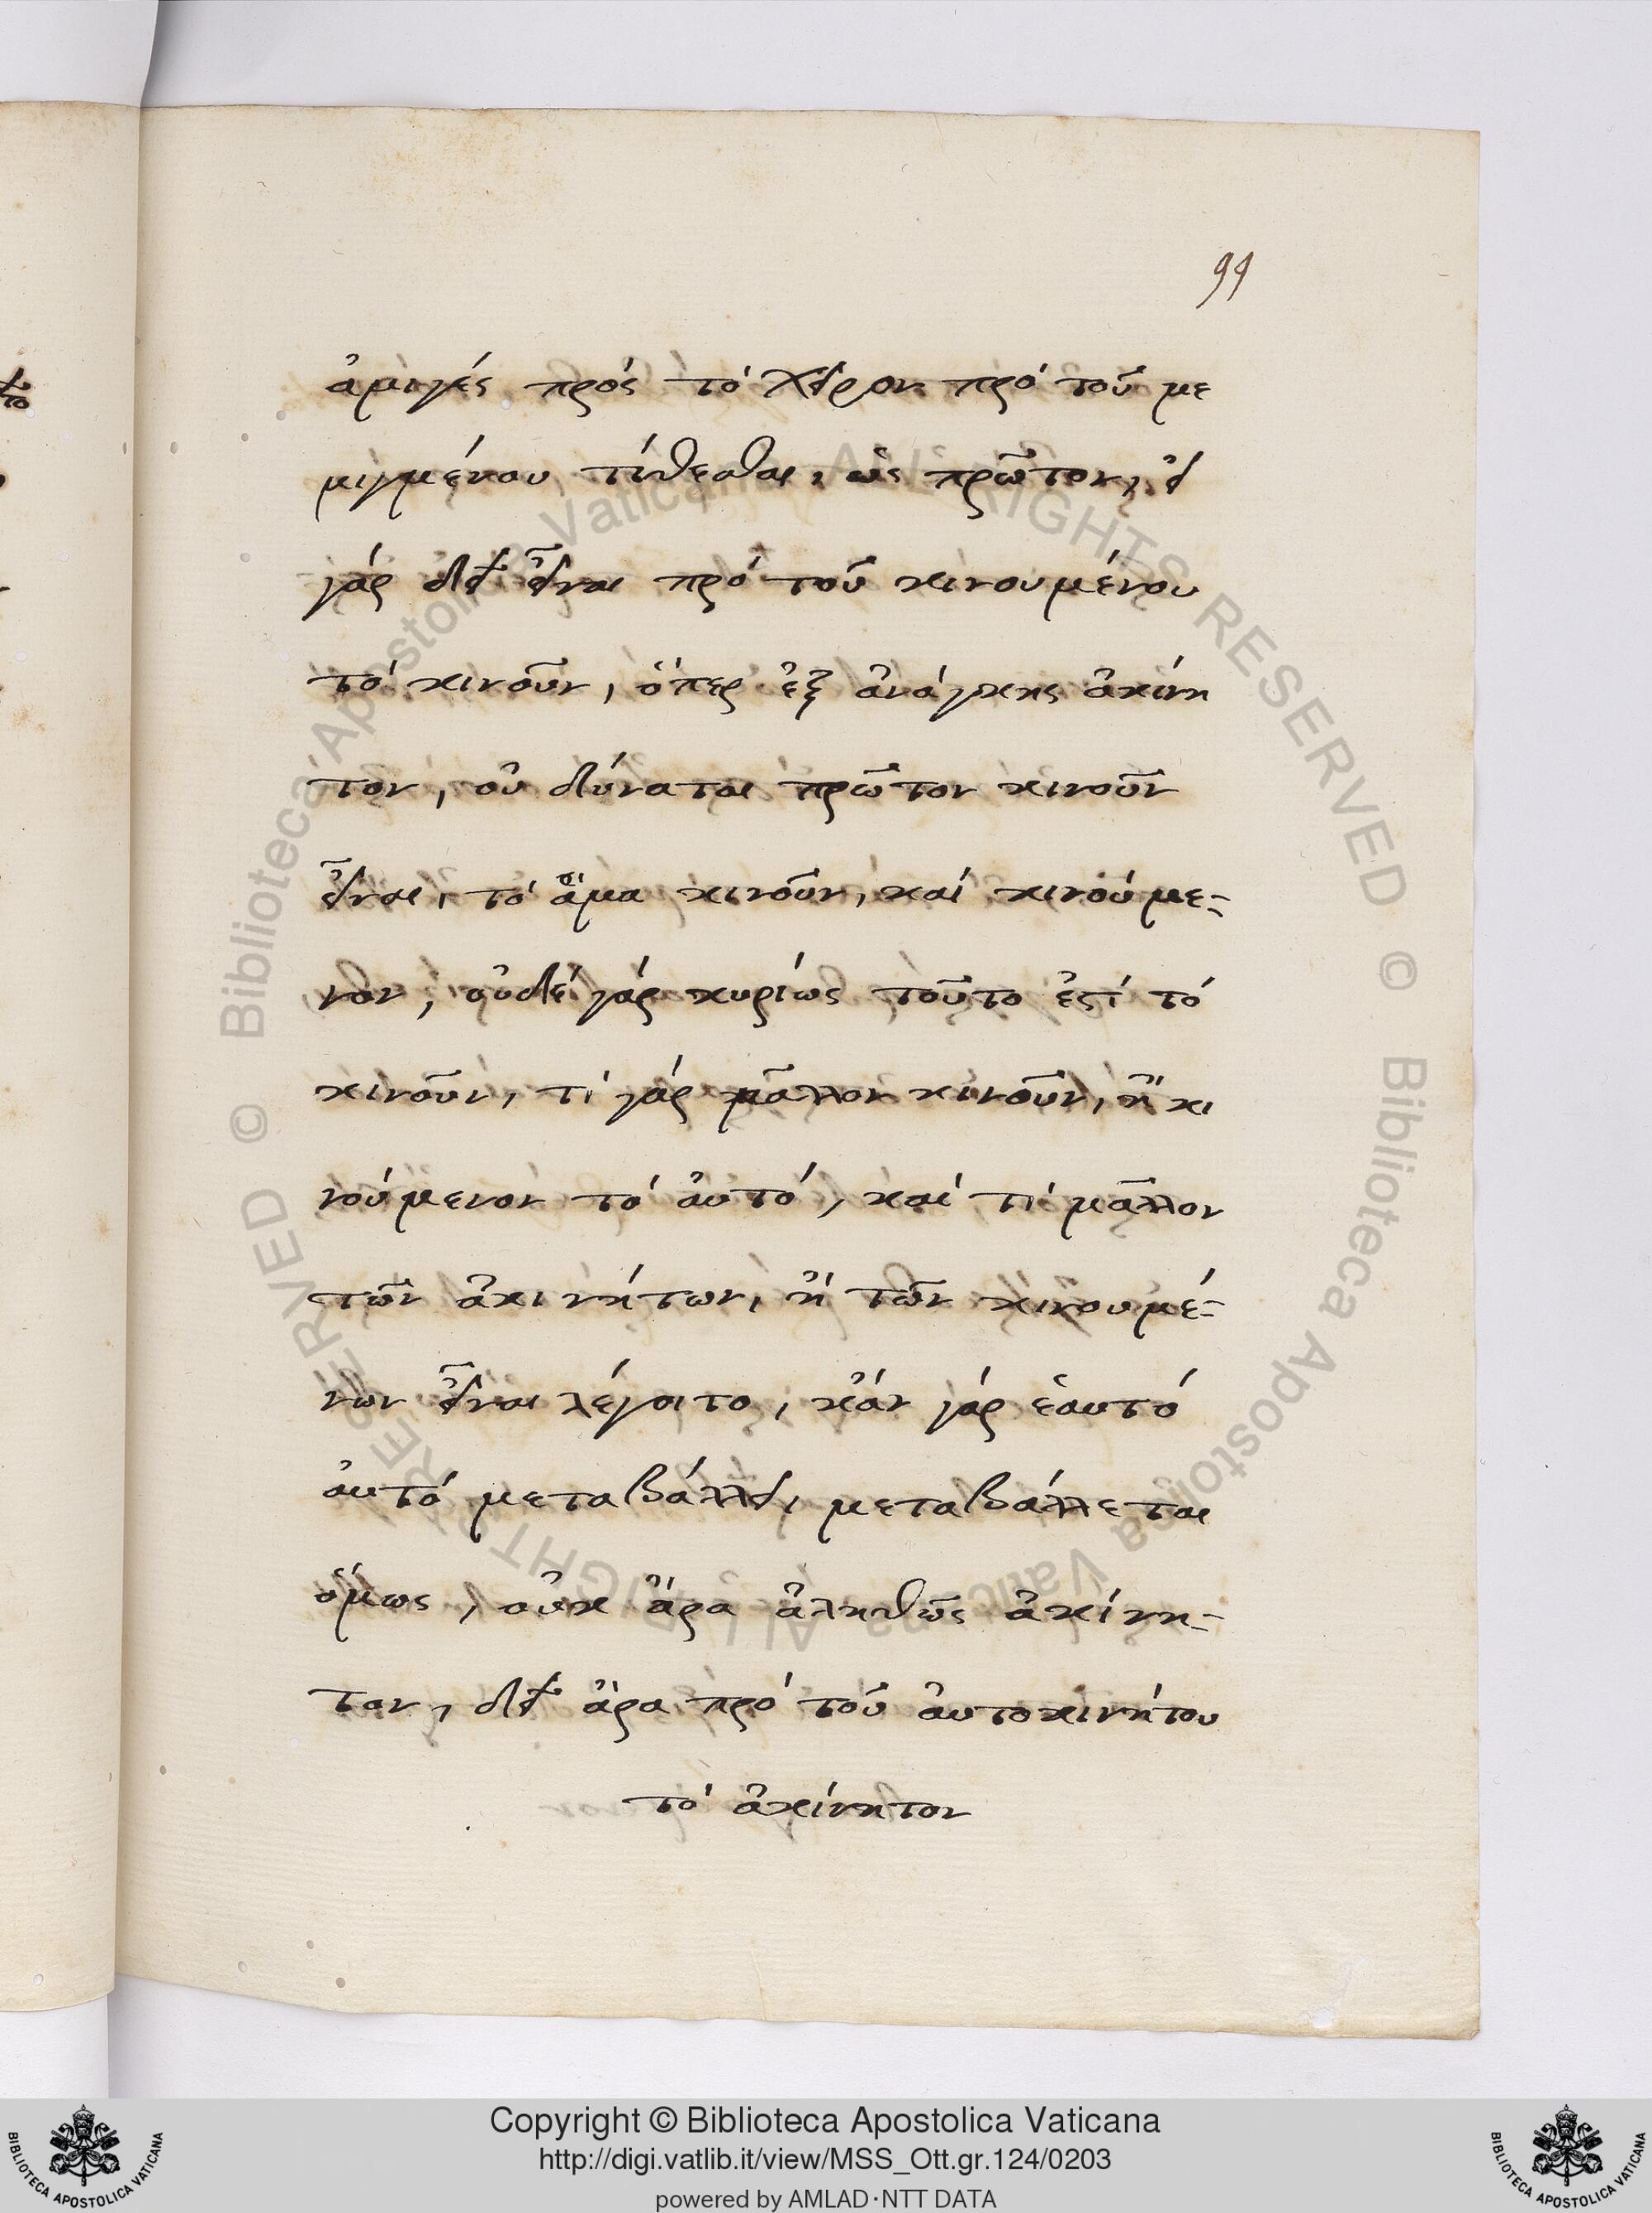 99
ἀμιγές πρός τό χεῖρον πρό τοῦ με
μιγμένου τίθεσθαι, ὡς πρῶτον, εἰ
γάρ δεῖ εἶναι πρό τοῦ κινουμένου
τό κινοῦν, ὅπερ ἐξ ἀνάγκης ἀκίνη
τον, οὐ δύναται πρῶτον κινοῦν
εἶναι, τό ἅμα κινοῦν, καί κινούμε-
νον, οὐδέ γάρ κυρίως τοῦτο ἐστί τό
κινοῦν, τί γάρ μᾶλλον κινοῦν, ἤ κι
νούμενον τό αὐτό, καί τί μᾶλλον
τῶν ἀκινήτων, ἤ τῶν κινουμέ-
νων εἶναι λέγοιτο, κἄν γάρ ἑαυτό
αὐτό μεταβάλλει, μεταβάλλεται
ὅμως, οὐκ ἄρα ἀληθῶς ἀκίνη-
τον, δεῖ ἄρα πρό τοῦ αὐτοκινήτου
τό ἀκίνητον
Copyright © Biblioteca Apostolica Vaticana
http://digi.vatlib.it/view/MSS_Ott.gr.124/0203
powered by AMLAD·NTT DATA
BIBLIOTECA APOSTOLICA VATICANA
BIBLIOTECA APOSTOLICA VATICANA
© Biblioteca Apostolica Vaticana ALL RIGHTS RESERVED
© Biblioteca Apostolica Vaticana ALL RIGHTS RESERVED